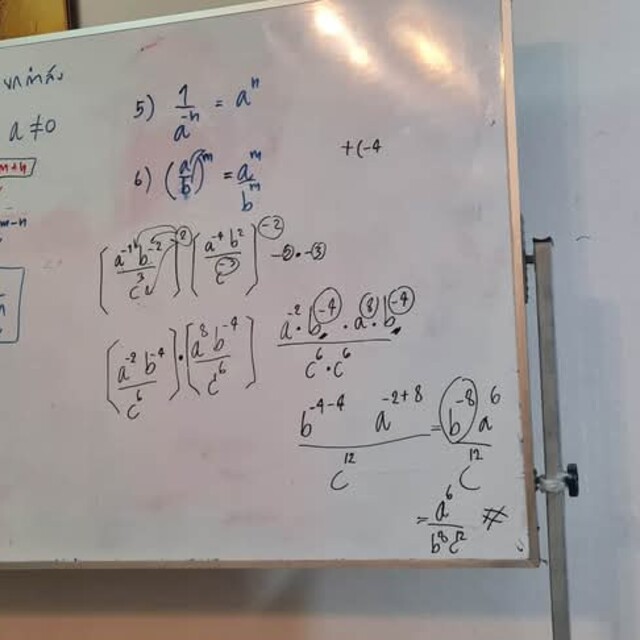 ยกกำลัง
a ≠ 0
m+n
m-n
5) 1/a^-n = a^n
6) (a/b)^m = a^m/b^m
+(-4
(a^-1 b^-2/c^3)^2 (a^-4 b^2/c^-3)^-2 -2·-3
(a^-2 b^-4/c^6)·(a^8 b^-4/c^6) a^-2·b^-4·a^8·b^-4/c^6·c^6
b^-4-4 a^-2+8/c^12 = b^-8 a^6/c^12
= a^6/b^8 c^12 #